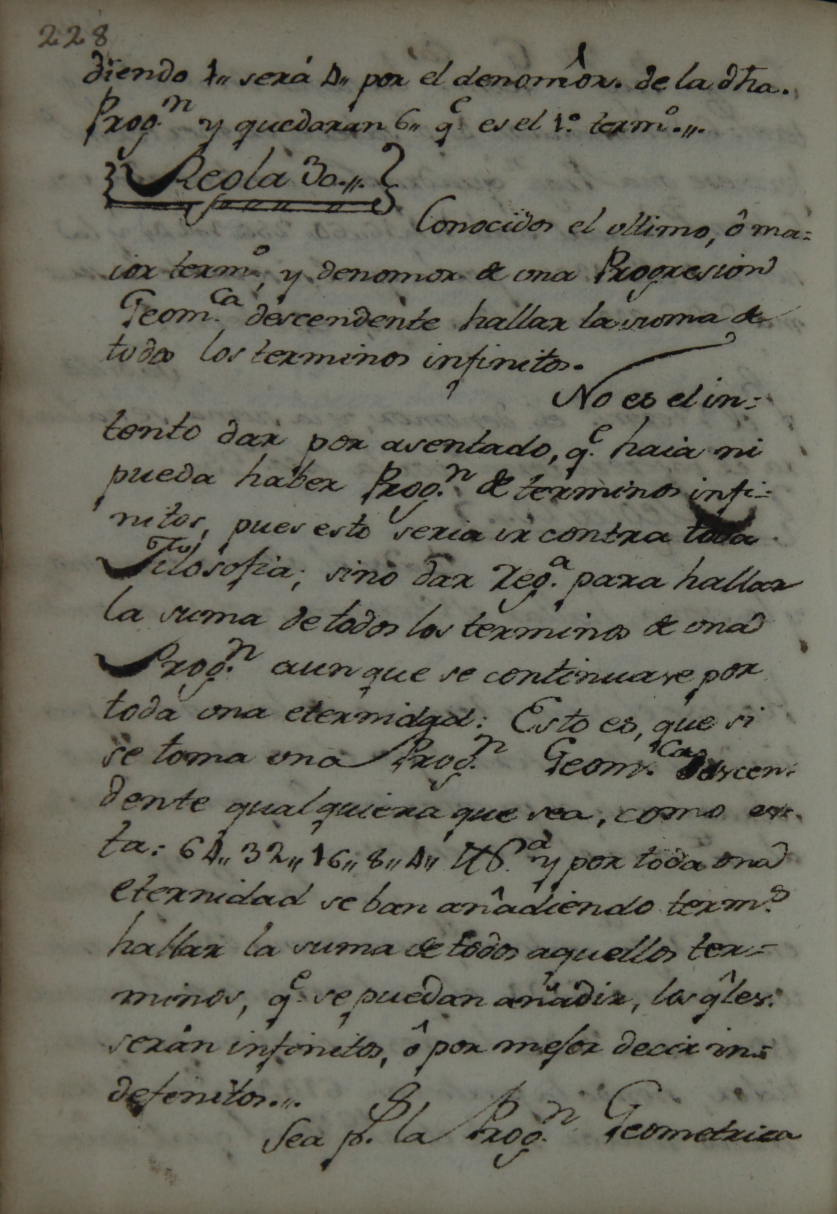 228
diendo 1,, será 4,, por el denomôr. de la dha.
Prog.ⁿ y quedarán 6,, q.ᵉ es el 1.º term.º,,.
Regla 3a.,,
Conocidos el ultimo, ô ma=
ior term.º, y denomor de una Progresion
Geom.ᶜᵃ descendente hallar la suma de
todos los terminos infinitos.
No es el in=
tento dar por asentado, q.ᵉ haia ni
pueda haber Prog.ⁿ de terminos infi=
nitos, pues esto seria ir contra toda
Filosofia; sino dar Reg.ᵃ para hallar
la suma de todos los terminos de una
Prog.ⁿ aunque se continuase por
toda una eternidad: Esto es, que si
se toma una Prog.ⁿ Geom.ᶜᵃ descen=
dente qualquiera que sea, como es=
ta: 64,, 32,, 16,, 8,, 4,, y por toda una
eternidad se ban añadiendo term.ˢ
hallar la suma de todos aquellos ter=
minos, q.ᵉ se puedan añadir, los q̂les.
serán infinitos, ô por mejor decir in=
definitos.,,.
Sea p.ʳ la Prog.ⁿ Geometrica